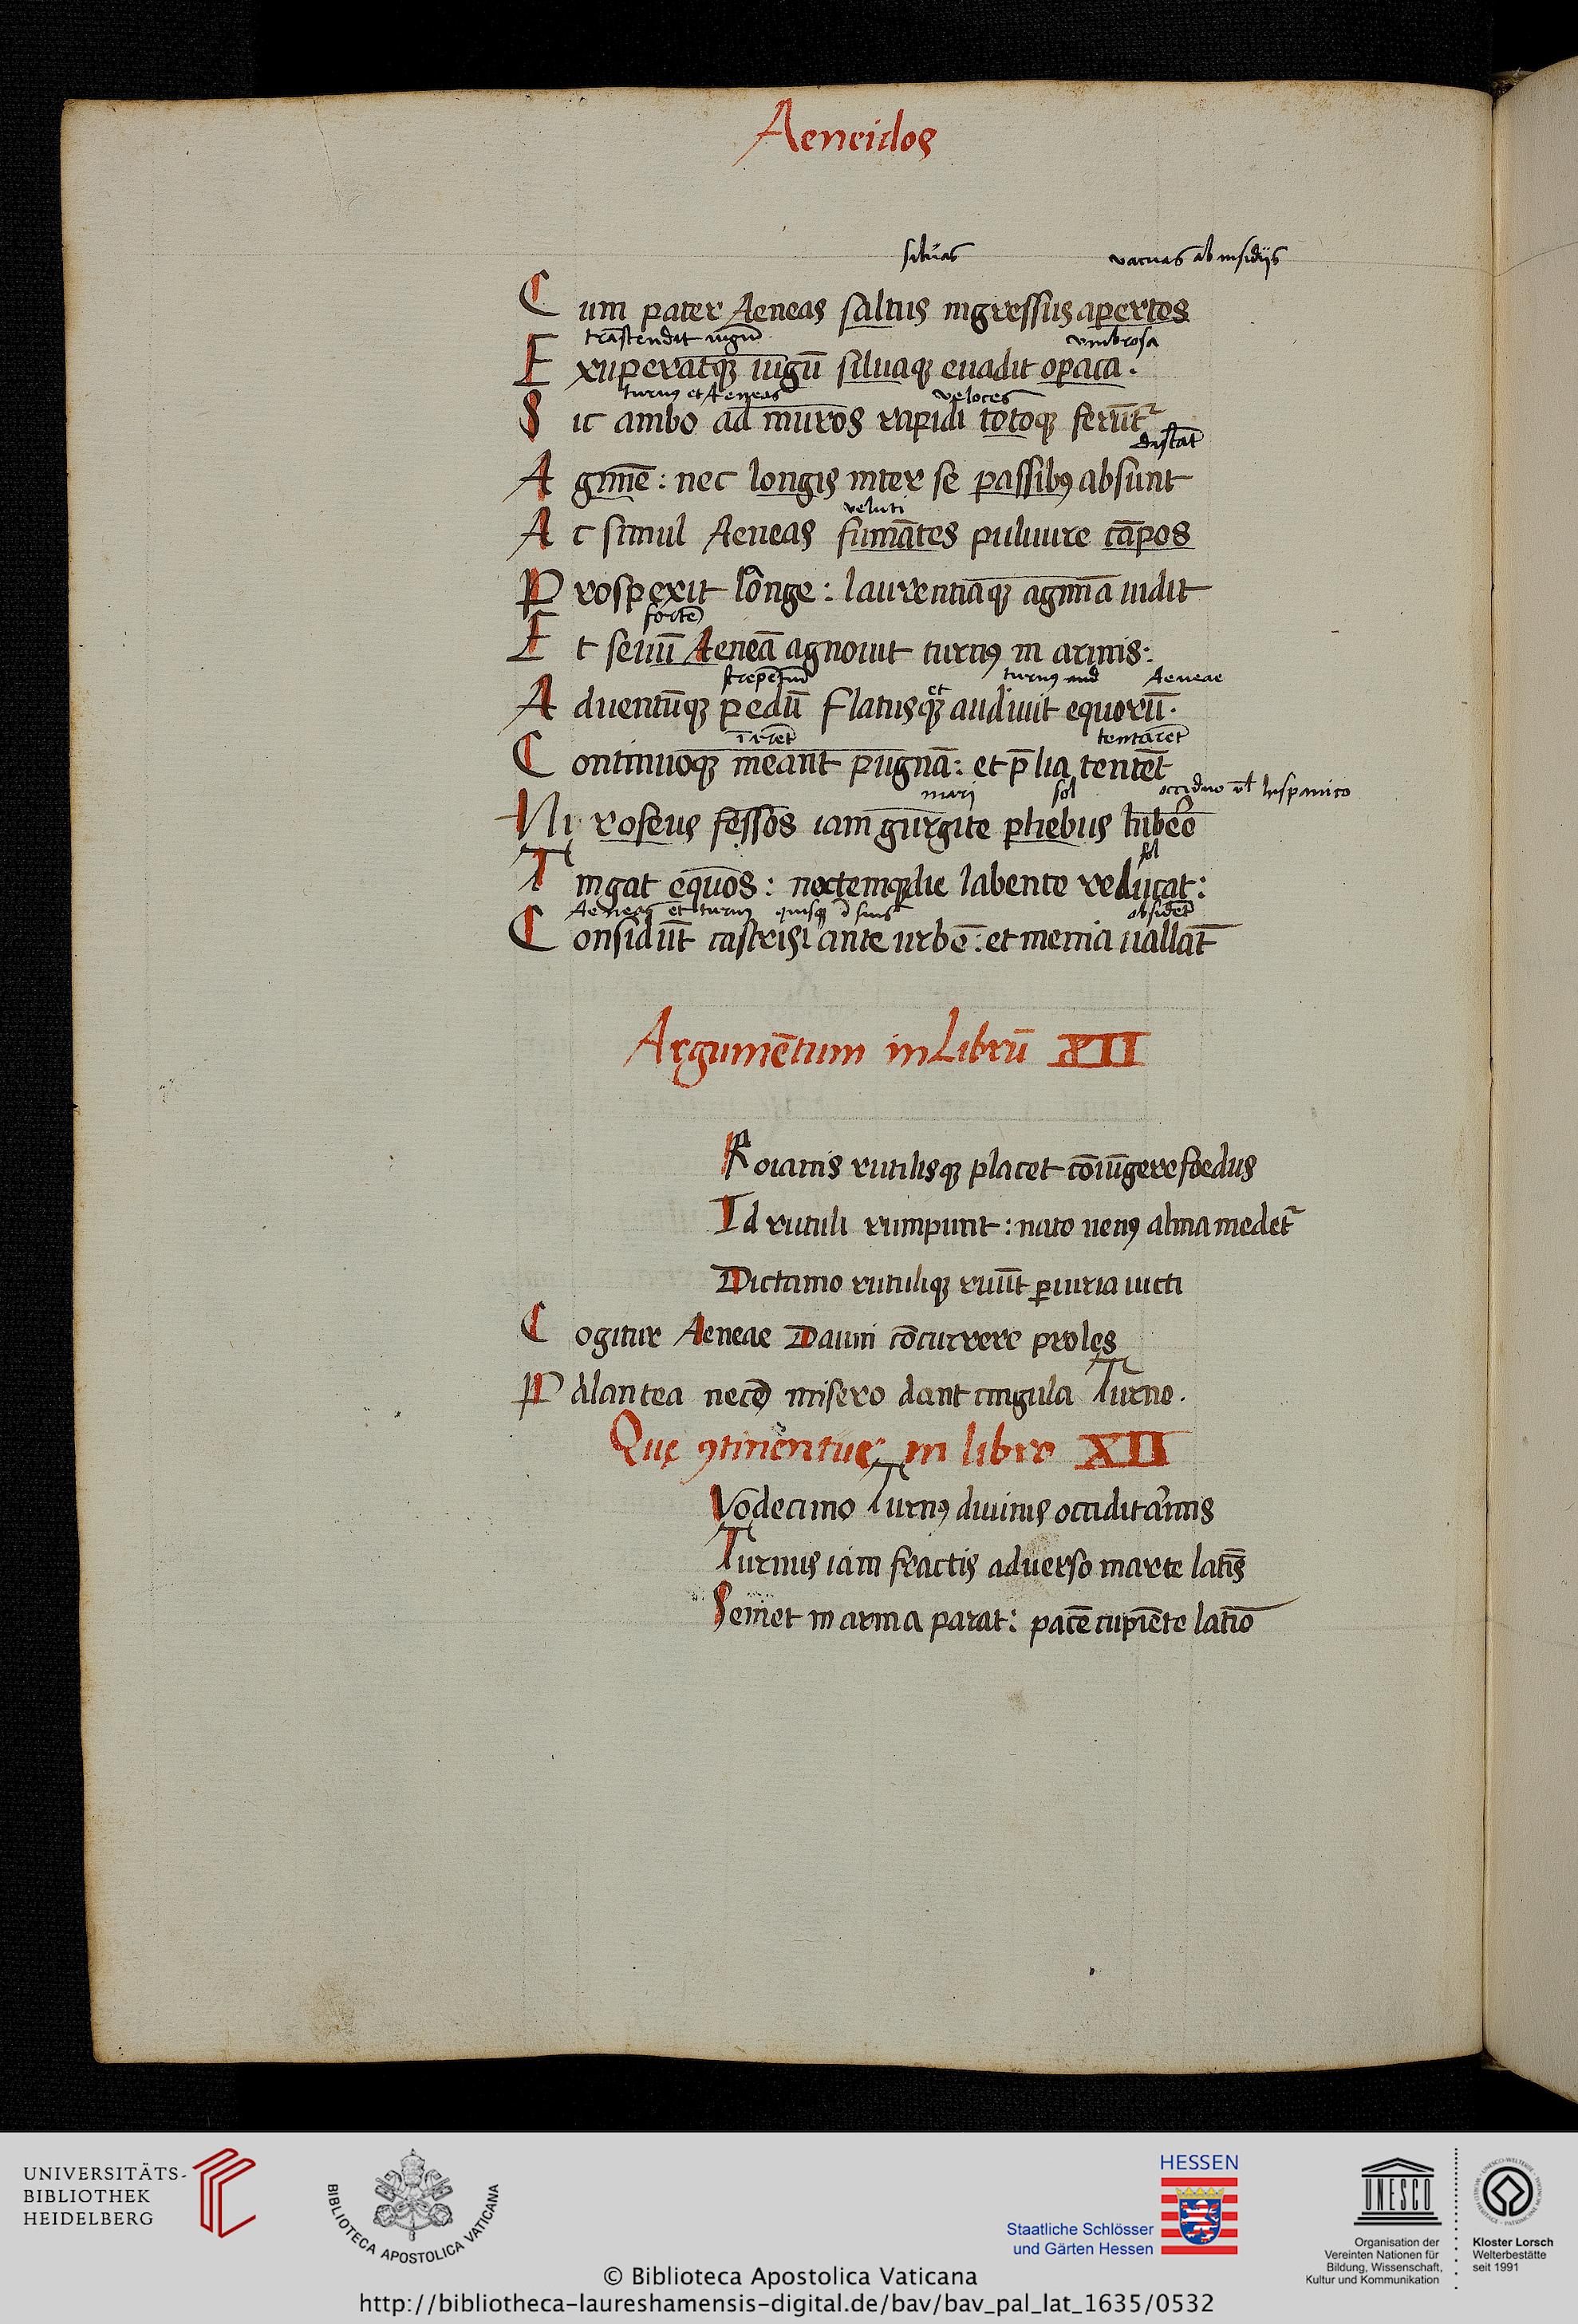 Aeneidos
siluas vacuas ab insidijs
Cum pater Aeneas saltus ingressus apertos
trāscendit iugū vmbrosa
Exuperatqȝ iugū siluaqȝ euadit opaca.
turnꝰ et Aeneas veloces
Sic ambo ad muros rapidi totoqȝ ferūt᷑
distāt
Agmīe: nec longis inter se passibꝰ absunt
veluti
Ac simul Aeneas fumātes puluure cāpos
Prospexit lōnge: laurentiaqȝ agmīa uidit
fortē
Et seuū Aeneā agnouit turnꝰ in armis:
strepitū et turnꝰ Aeneae
Aduentūqȝ pedū flatusqȝ audiuit equorū.
īrēt tentarēt
Continuoqȝ ineant pugnā: et p̄lia tentēt
mari sol occiduo vl̄ hispanico
Ni roseus fessos iam gurgite phebus hibēo
sol
Tingat equos: noctemqȝ die labente reducat:
Aeneas et turnꝰ quisqȝ ī suis obsidēt
Considūt castris ante urbē: et menia uallāt
Argumētum in Librū XII
Roianis rutilisqȝ placet cōiūgere foedus
Id rutuli rumpunt: nato uenꝰ alma medet᷑
Dictamo rutuliqȝ ruūt ꝑiuria uicti
Cogitur Aeneae Dauni cōcurrere proles
Palantea necē misero dant cingula Turno.
Quę ꝯtinentur in libro XII
Vodecimo Turnꝰ diuinis occidit armis
Turnus iam fractis aduerso marte latīs
Semet in arma parat: pacē cupiēte latīo
UNIVERSITÄTS-
BIBLIOTHEK
HEIDELBERG
BIBLIOTECA APOSTOLICA VATICANA
HESSEN
Staatliche Schlösser
und Gärten Hessen
UNESCO
Organisation der
Vereinten Nationen für
Bildung, Wissenschaft,
Kultur und Kommunikation
Kloster Lorsch
Welterbestätte
seit 1991
© Biblioteca Apostolica Vaticana
http://bibliotheca-laureshamensis-digital.de/bav/bav_pal_lat_1635/0532